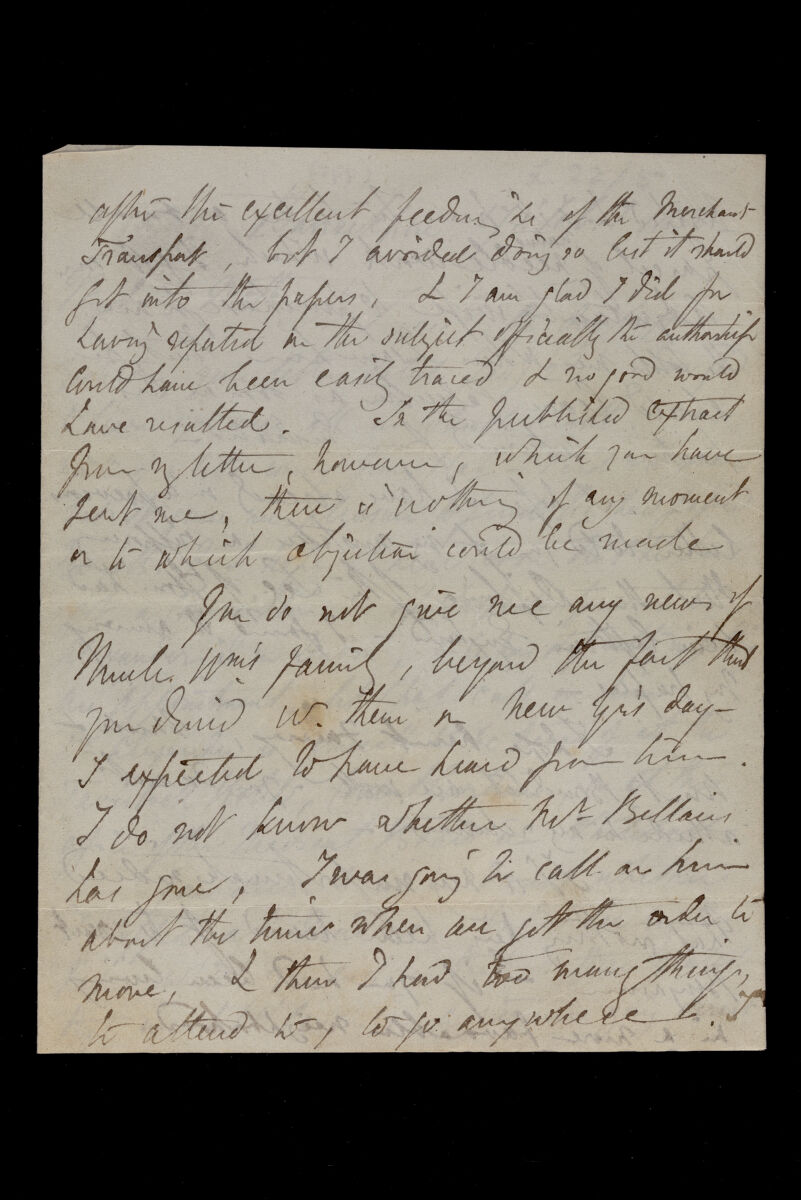 after the excellent feeding &c of the Merchant
Transport, but I avoided doing so lest it should
get into the papers, & I am glad I did for
having reported on the subject officially the authorship
could have been easily traced & no good would
have resulted. In the published extract
from my letter, however, which you have
sent me, there is nothing of any moment
or to which objection could be made
You do not give me any news of
Uncle Wm's family, beyond the fact that
you dined w. them on New Yr's day—
I expected to have heard from him.
I do not know whether Mr Bellairs
has gone, I was going to call on him
about the time when we got the order to
move, & then I had too many things
to attend to, to go anywhere.